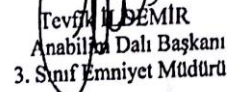 Tevfik İLDEMİR
Anabilim Dalı Başkanı
3. Sınıf Emniyet Müdürü